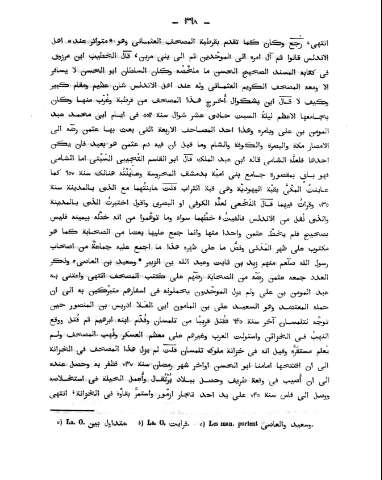 — ٣٩٨ —
انتهى، رجع وكان كما تقدم بقرطبة المصحف العثماني وهو متواتر عند اهل
الاندلس قالوا ثم آل امره الى الموحدين ثم الى بنى مرين، قال الخطيب ابن مرزوق
فى كتابه المسند الصحيح الحسن ما ملخصه وكان السلطان ابو الحسن لا يسافر
الا ومعه المصحف الكريم العثمانى وله عند اهل الاندلس شان عظيم ومقام كبير
وكيف لا قال ابن بشكوال أخرج هذا المصحف من قرطبة وغرب منها وكان
بجامعها الاعظم ليلة السبت حادى عشر شوال سنة ٥٥٢ فى ايام ابى محمد عبد
المومن بن على وبامره وهذا احد المصاحف الاربعة التى بعث بها عثمن رضّه الى
الامصار مكة والبصرة والكوفة والشام وما قيل ان فيه دم عثمن هو بعيد فان يكن
احدها فلعله الشامى قاله ابن عبد الملك قال ابو القاسم التجيبى السبتى اما الشامى
فهو باق بمقصورة جامع بنى امية بدمشق المحروسة وعاينته هنالك سنة ٦٥٧ كما
عاينت المكى بقبة اليهودية وهى قبة التراب قلت عاينتهما مع الذى بالمدينة سنة
٧٣٥ وقرات فيها قال النخعى لعله الكوفى او البصرى واقول اختبرت الذى بالمدينة
والذى نقل من الاندلس فالفيت خطهما سواء وما توهموا من انه خطه بيمينه فليس
بصحيح فلم يخط عثمن واحدا منها وانما جمع عليها بعضا من الصحابة كما هو
مكتوب على ظهر المدنى ونص ما على ظهره هذا ما اجمع عليه جماعة من اصحاب
رسول الله صلعم منهم زيد بن ثابت وعبد الله بن الزبير وسعيد بن العاصى وذكر
العدد جمعه عثمن رضّه من الصحابة رضهم على كتب المصحف انتهى واعتنى به
عبد المومن بن على ولم يزل الموحدون يحملونه فى اسفارهم متبركين به الى ان
حمله المعتضد وهو السعيد على بن المامون ابى العلا ادريس بن المنصور حين
توجه لتلمسان آخر سنة ٦٤٥ فقتل قريبا من تلمسان وقدم ابنه ابرهيم ثم قتل ووقع
النهب فى الخزائن واستولت العرب وغيرهم على معظم العسكر ونهب المصحف ولم
يعلم مستقره وقيل انه فى خزانة ملوك تلمسان قلت لم يزل هذا المصحف فى الخزانة
الى ان افتتحها امامنا ابو الحسن اواخر شهر رمضان سنة ٧٣٧ فظفر به وحصل عنده
الى ان أصيب فى وقعة طريف وحصل ببلاد برتقال وأعمل الحيلة فى استخلاصه
ووصل الى فاس سنة ٧٤٥ على يد احد تجار ازمور واستمر بقاؤه فى الخزانة، انتهى
a) La. O. متداول بين. b) La. O. قرابت. c) Les man. portent وسعيد والعاصى.